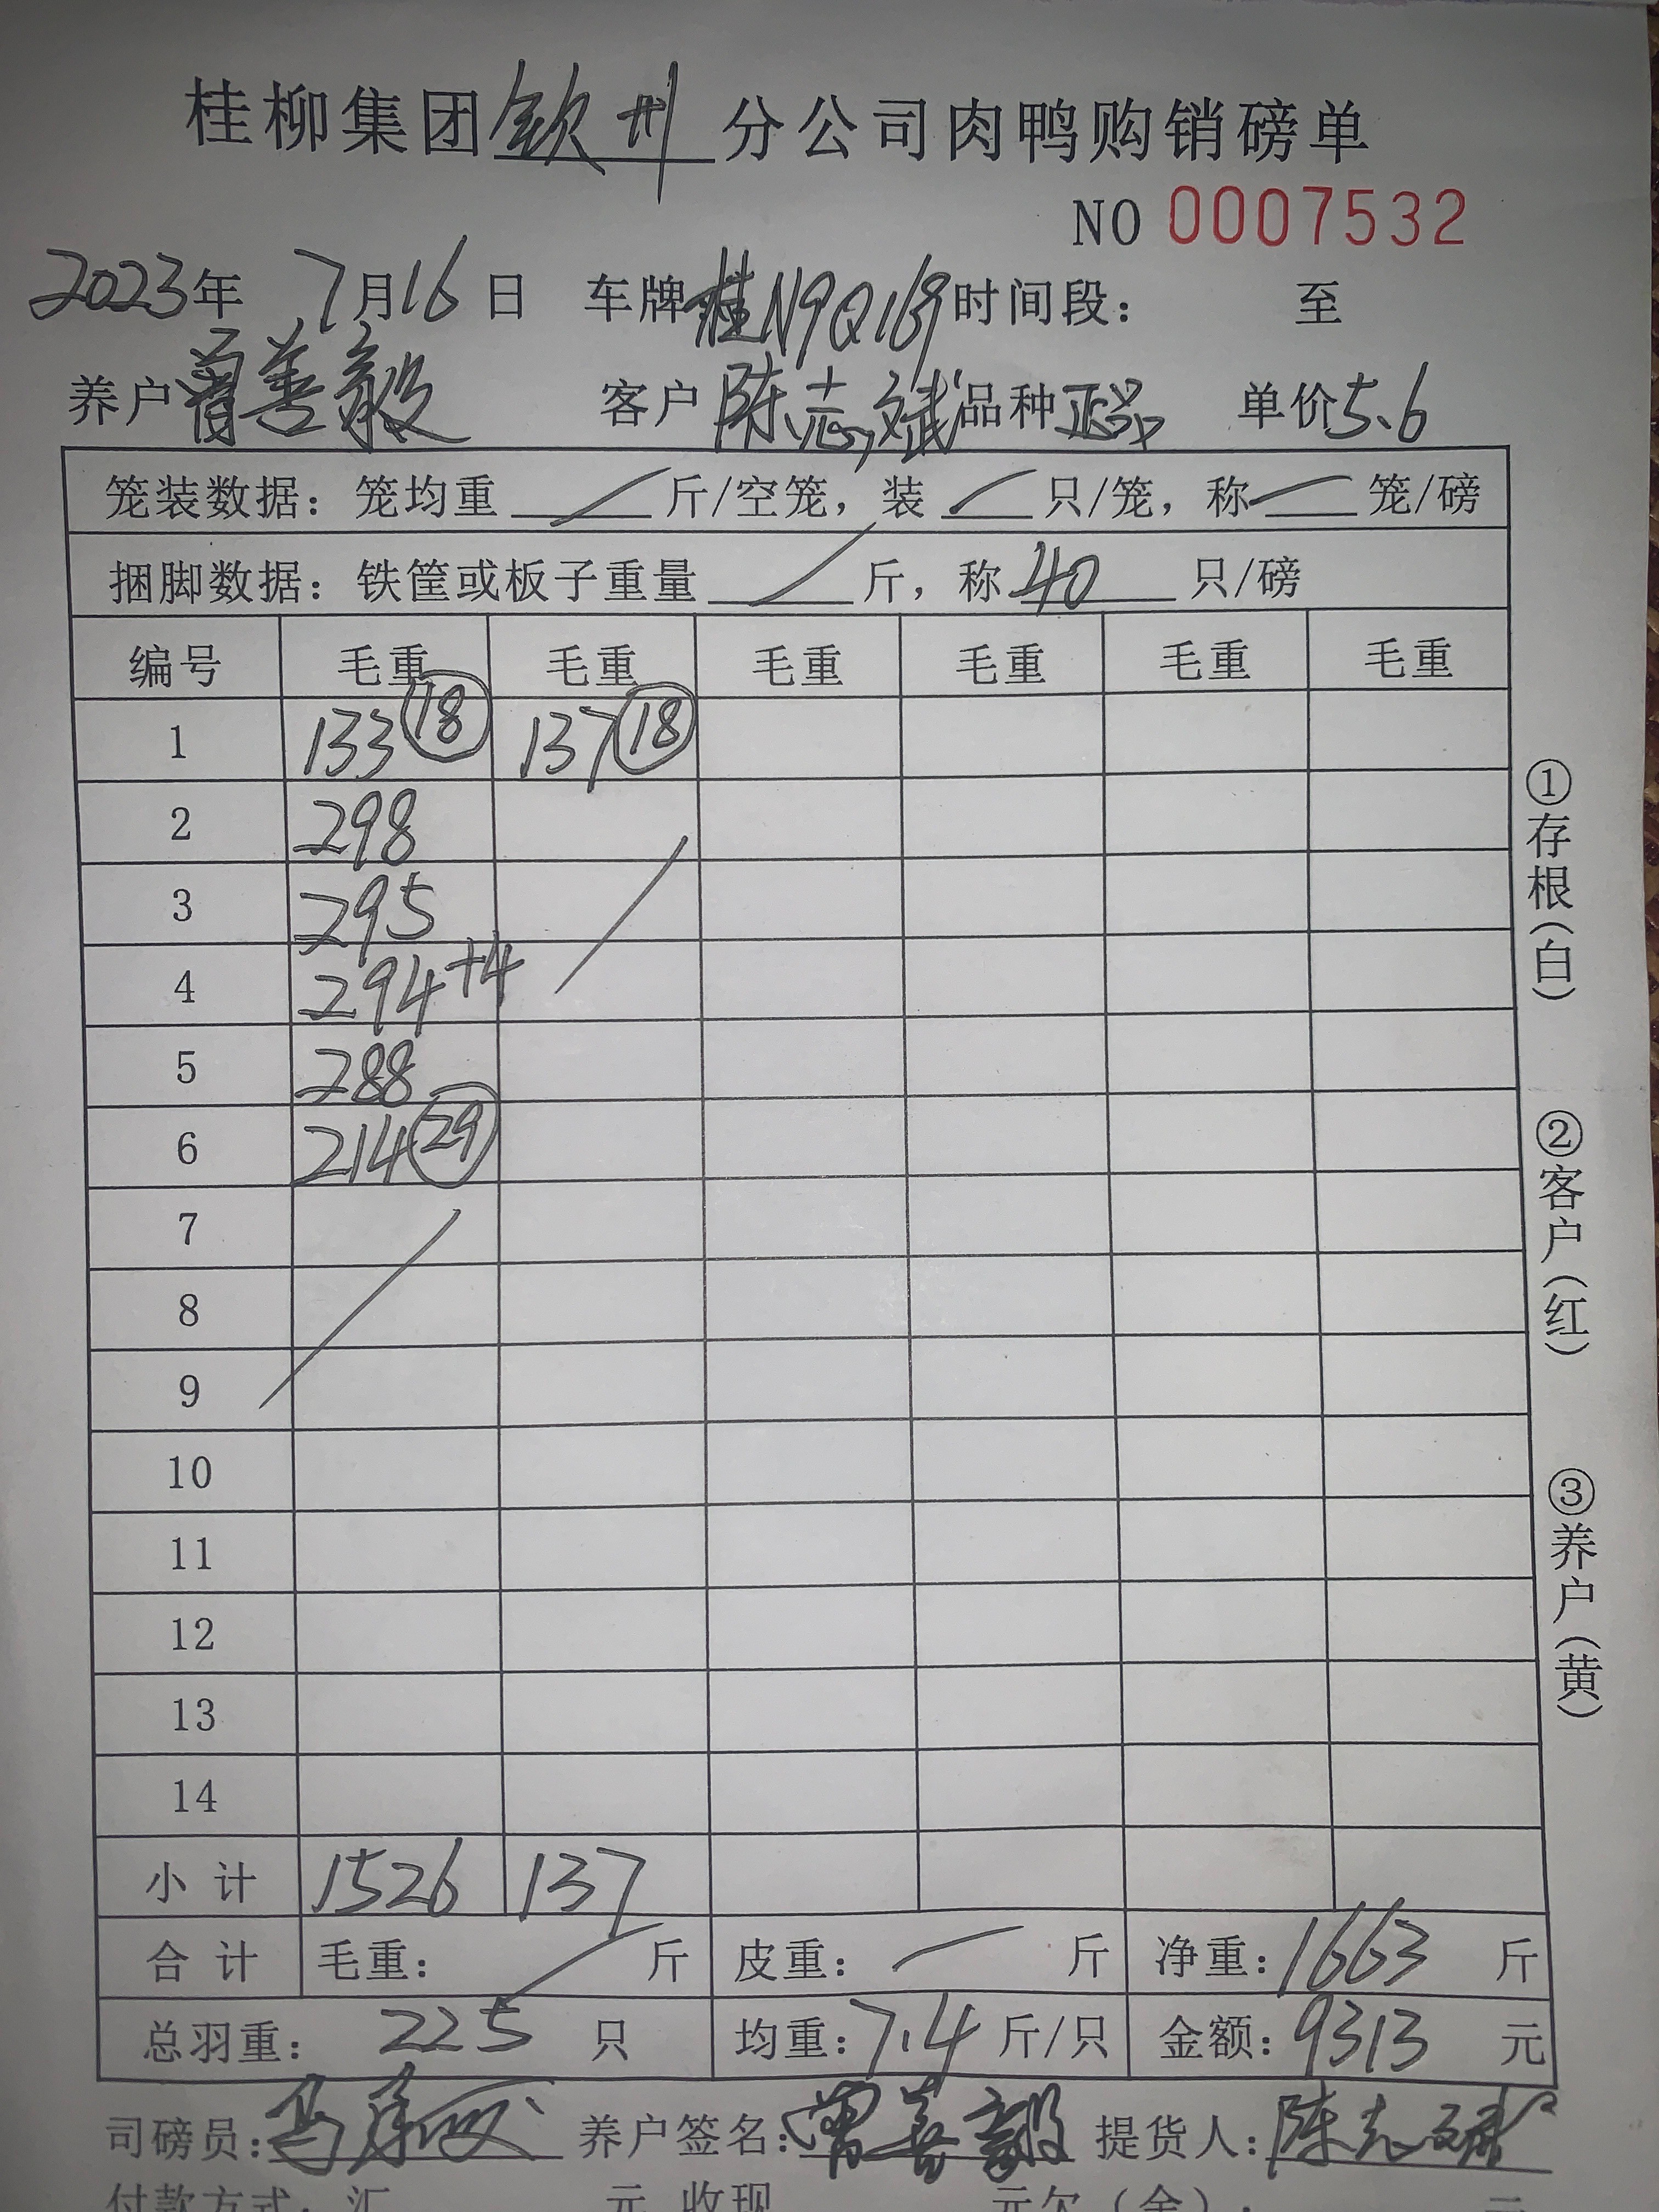 桂柳集团钦州分公司肉鸭购销磅单
NO 0007532
2023年 7月16日 车牌桂N9Q169时间段： 至
养户曾善毅 客户陈志斌品种正品 单价5.6
笼装数据：笼均重 斤/空笼，装 只/笼，称 笼/磅
捆脚数据：铁筐或板子重量 斤，称40只/磅
编号 毛重 毛重 毛重 毛重 毛重 毛重
1 133 18 137 18
2 298
3 295
4 294+4
5 288
6 214 29
7
8
9
10
11
12
13
14
小计 1526 137
合计 毛重： 斤 皮重： 斤 净重：1663斤
总羽重：225只 均重：7.4斤/只 金额：9313元
司磅员： 养户签名：曾善毅 提货人：陈志斌
付款方式：汇 元 收现 元欠（余）： 元
①存根（白）
②客户（红）
③养户（黄）